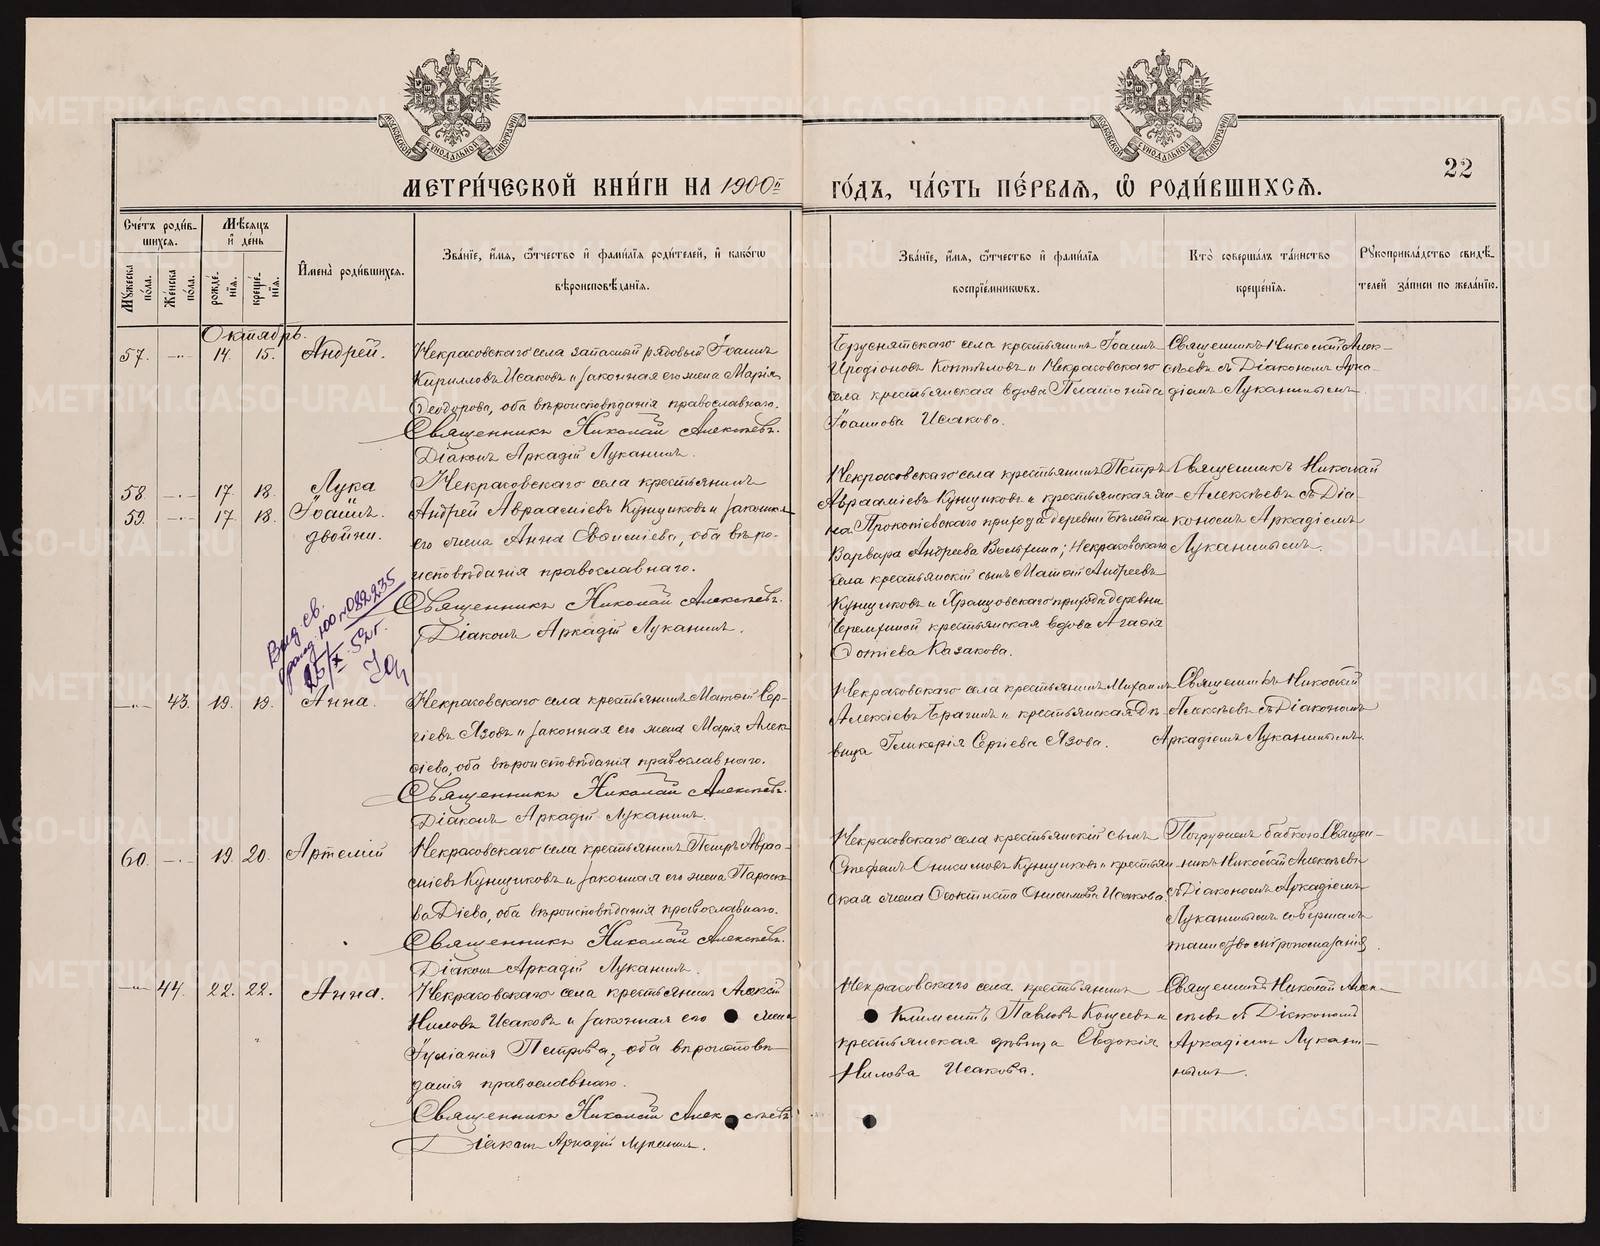 МЕТРИ́ЧЕСКОЙ КНИ́ГИ НА 1900й ГО́ДЪ, ЧА́СТЬ ПЕ́РВАЯ, Ѽ РОДИ́ВШИХСЯ.
22
МОСКОВСКОЙ СѴНОДАЛЬНОЙ ТИПОГРАФІИ
МОСКОВСКОЙ СѴНОДАЛЬНОЙ ТИПОГРАФІИ
Сче́тъ роди́в-
шихся.
Мѣ́сяцъ
и҆ де́нь
Мꙋ́жеска по́ла.
Же́нска по́ла.
рожде́-нїѧ.
креще́-нїѧ.
И҆мена̀ роди́вшихся.
Зва́нїе, и҆́мѧ, ѻ҆́тчество и҆ фами́лїѧ роди́телей, и҆ како́гѡ
вѣроисповѣ́данїѧ.
Зва́нїе, и҆́мѧ, ѻ҆́тчество и҆ фами́лїѧ
воспрїе́мникѡвъ.
Кто̀ соверша́лъ та́инство
креще́нїѧ.
Рꙋкоприкла́дство свидѣ́-
телей за́писи по жела́нїю.
Октябрь.
57. -"- 14. 15. Андрей.
Некрасовскаго села запасный рядовый Іоаннъ
Кирилловъ Исаковъ и законная его жена Марія
Ѳеодорова, оба вѣроисповѣданія православнаго.
Священникъ Николай Алексѣевъ.
Діаконъ Аркадій Луканинъ.
Бруснятскаго села крестьянинъ Іоаннъ
Иродіоновъ Коптѣловъ и Некрасовскаго
села крестьянская вдова Платонида
Іоаннова Исакова.
Священникъ Николай Алек-
сѣевъ съ Діакономъ Арка-
діемъ Луканинымъ.
58. -"- 17. 18. Лука
59. -"- 17 18. Іоаннъ.
двойни.
Некрасовскаго села крестьянинъ
Андрей Авраамiевъ Кунщиковъ и законная
его жена Анна, оба вѣро-
исповѣданія православнаго.
Священникъ Николай Алексѣевъ.
Діаконъ Аркадій Луканинъ.
Некрасовскаго села крестьянинъ Петръ
Авраамiевъ Кунщиковъ и крестьянская же-
на Прокопіевскаго прихода деревни Бѣлейки
Варвара Андреева; Некрасовскаго
села крестьянскій сынъ Матѳій Андреевъ
Кунщиковъ и Храмцовскаго прихода деревни
Черемхиной крестьянская вдова Агаѳія
Фотіева Казакова.
Священникъ Николай
Алексѣевъ съ Діа-
кономъ Аркадіемъ
Луканинымъ.
Выд. св.
100 № 082235
25/X 52 г.
-"- 43. 19. 19. Анна.
Некрасовскаго села крестьянинъ Матѳій Сер-
гіевъ Язовъ и законная его жена Марія Алек-
сіева, оба вѣроисповѣданія православнаго.
Священникъ Николай Алексѣевъ.
Діаконъ Аркадій Луканинъ.
Некрасовскаго села крестьянинъ Михаилъ
Алексіевъ Брагинъ и крестьянская дѣ-
вица Гликерія Сергіева Язова.
Священникъ Николай
Алексѣевъ съ Діакономъ
Аркадіемъ Луканинымъ.
60. -"- 19. 20. Артемій
Некрасовскаго села крестьянинъ Петръ Авраа-
міевъ Кунщиковъ и законная его жена Параске-
ва Діева, оба вѣроисповѣданія православнаго.
Священникъ Николай Алексѣевъ.
Діаконъ Аркадій Луканинъ.
Некрасовскаго села крестьянскій сынъ
Стефанъ Онисимовъ Кунщиковъ и крестьян-
ская жена Ѳеоктиста Онисимова Исакова.
Погруженъ бабкою Священ-
никъ Николай Алексѣевъ
съ Діакономъ Аркадіемъ
Луканинымъ совершалъ
таинство мѵропомазанія.
-"- 44. 22. 22. Анна.
Некрасовскаго села крестьянинъ Алексій
Ниловъ Исаковъ и законная его жена
Іуліанія Петрова, оба вѣроисповѣ-
данія православнаго.
Священникъ Николай Алексѣевъ
Діаконъ Аркадій Луканинъ.
Некрасовскаго села крестьянинъ
Климентъ Павловъ Кощеевъ и
крестьянская дѣвица Евдокія
Нилова Исакова.
Священникъ Николай Алек-
сѣевъ съ Діакономъ
Аркадіемъ Лукани-
нымъ.
METRIKI.GASO-URAL.RU